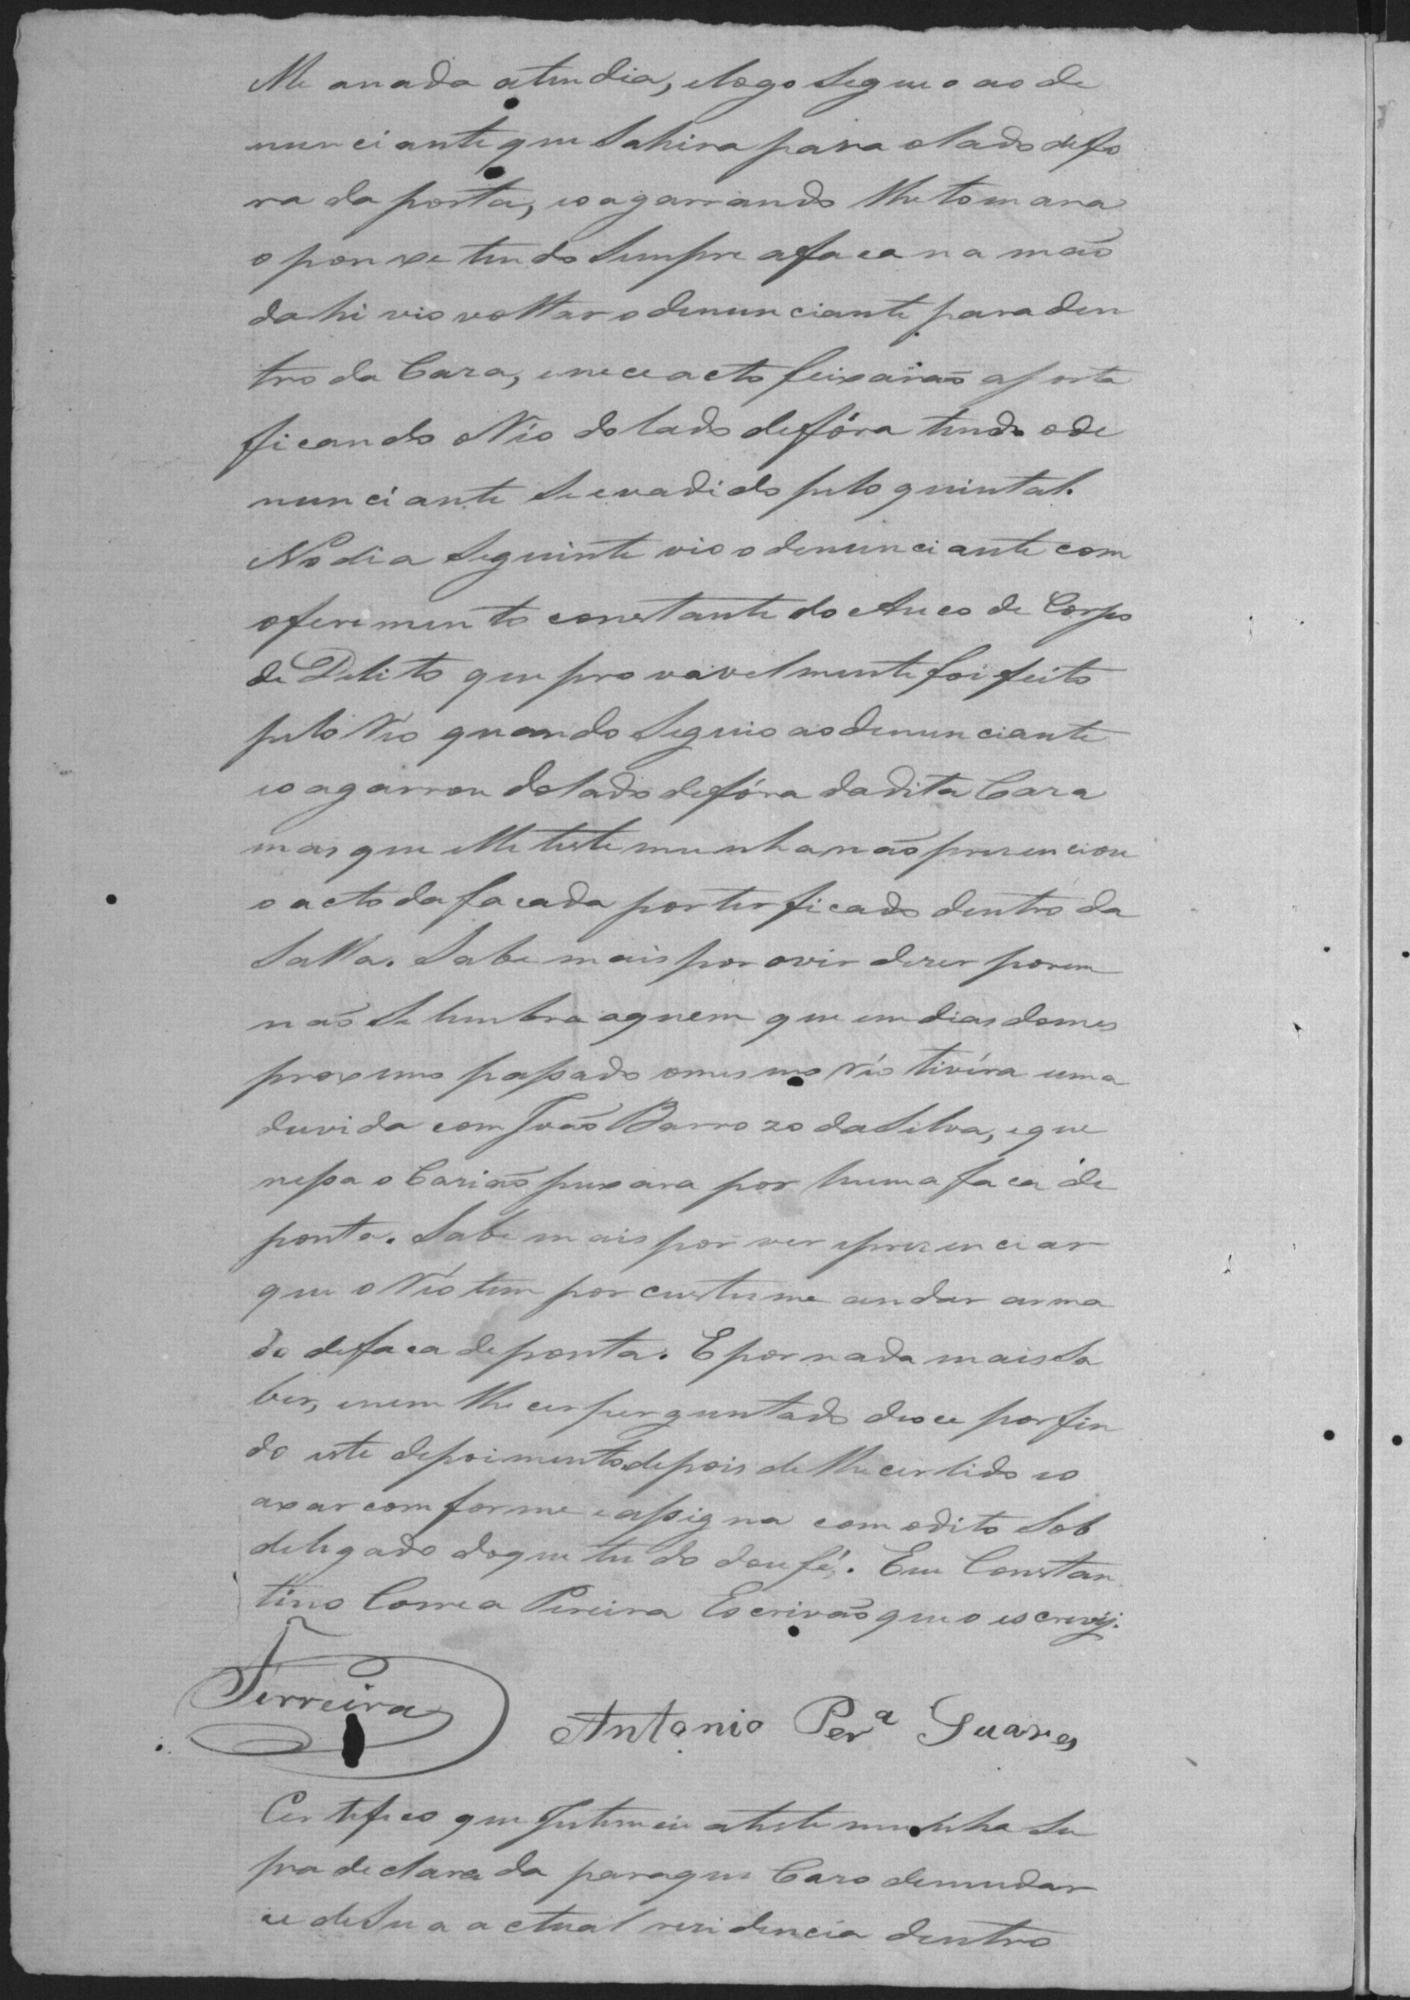 elle a nada atendia, e logo seguio ao de
nunciante que sahira para o lado de fo
ra da porta, e o agarrando lhe tomara
o ponxe tendo sempre a faca na mão
dahi vio voltar o denunciante para den
tro da Caza, e nece acto feixarão a porta
ficando o Réo do lado de fóra tendo o de
nunciante se evadido pelo quintal.
No dia seguinte vio o denunciante com
o ferimento constante do Auco de Corpo
de Delito que provavelmente foi feito
pelo Réo quando seguio ao denunciante
e o agarrou do lado de fóra da dita Caza
mas que elle testemunha não prezenciou
o acto da facada por ter ficado dentro da
Salla. Sabe mais por ovir dezer porem
não se lembra a quem que em dias do mes
proximo passado o mesmo Réo tivéra uma
duvida com João Barrozo da Silva, e que
nessa o Cazião puxara por huma faca de
ponta. Sabe mais por ver e prezenciar
que o Réo tem por custume andar arma
do de faca de ponta. E por nada mais sa
ber, e nem lhe cer perguntado dece por fin
do este depoimento depois de lhe cer lido e o
axar comforme e assigna com o dito Sob
delegado do que tudo dou fé. Eu Constan
tino Correa Pereira Escrivão que o escrevy.
Ferreira
Antonio Per.ª Guares
Certifico que Intimei a testemunha su
pra declarada para que Cazo de mudar
ce de sua actual rezidencia dentro